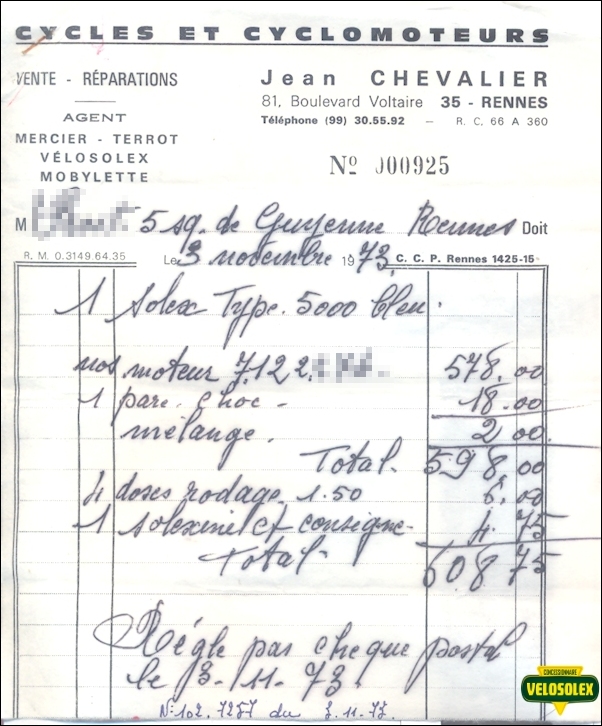 CYCLES ET CYCLOMOTEURS
VENTE - RÉPARATIONS
AGENT
MERCIER - TERROT
VÉLOSOLEX
MOBYLETTE
Jean CHEVALIER
81, Boulevard Voltaire 35 - RENNES
Téléphone (99) 30.55.92 — R. C. 66 A 360
Nº 000925
M 5 sq. de Guyenne Rennes Doit
R. M. 0.3149.64.35 Le 3 novembre 1973 C. C. P. Rennes 1425-15
1 Solex Type. 5000 bleu.
nos moteur 7.122. 578.00
1 pare. choc - 18.00
mélange. 2 00
Total. 598 00
4 doses rodage 1.50 6.00
1 solexinel et consigne - 4.75
Total 608 75
Réglé par chèque postal
le 3-11-73
N: 102.7257 du 3.11.73
CONCESSIONNAIRE
VELOSOLEX